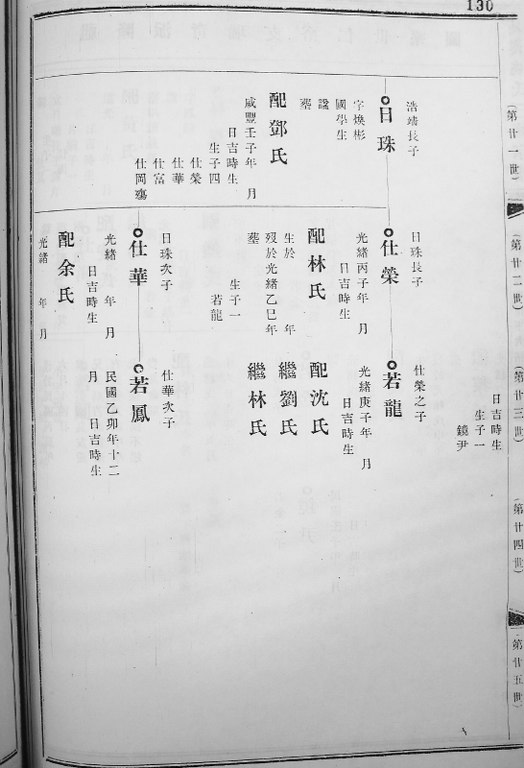 130
(第廿一世)
(第廿二世)
(第廿三世)
(第廿四世)
第廿五世)
日吉時生
生子一
鏡尹
浩靖長子
日珠
字煥彬
國學生
諡
墓
配鄧氏
咸豐壬子年 月
日吉時生
生子四
仕榮
仕華
仕富
仕岡殤
日珠長子
仕榮
光緒丙子年 月
日吉時生
配林氏
生於 年
歿於光緒乙巳年
墓
生子一
若龍
仕榮之子
若龍
光緒庚子年 月
日吉時生
配沈氏
繼劉氏
繼林氏
日珠次子
仕華
光緒 年 月
日吉時生
配余氏
光緒 年 月
仕華次子
若鳳
民國乙卯年十二
月 日吉時生